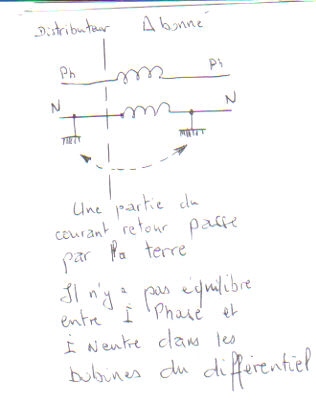 Distributeur Abonné
Ph Ph
N N
Une partie du
courant retour passe
par la terre
Il n'y a pas équilibre
entre I Phase et
I Neutre dans les
bobines du différentiel